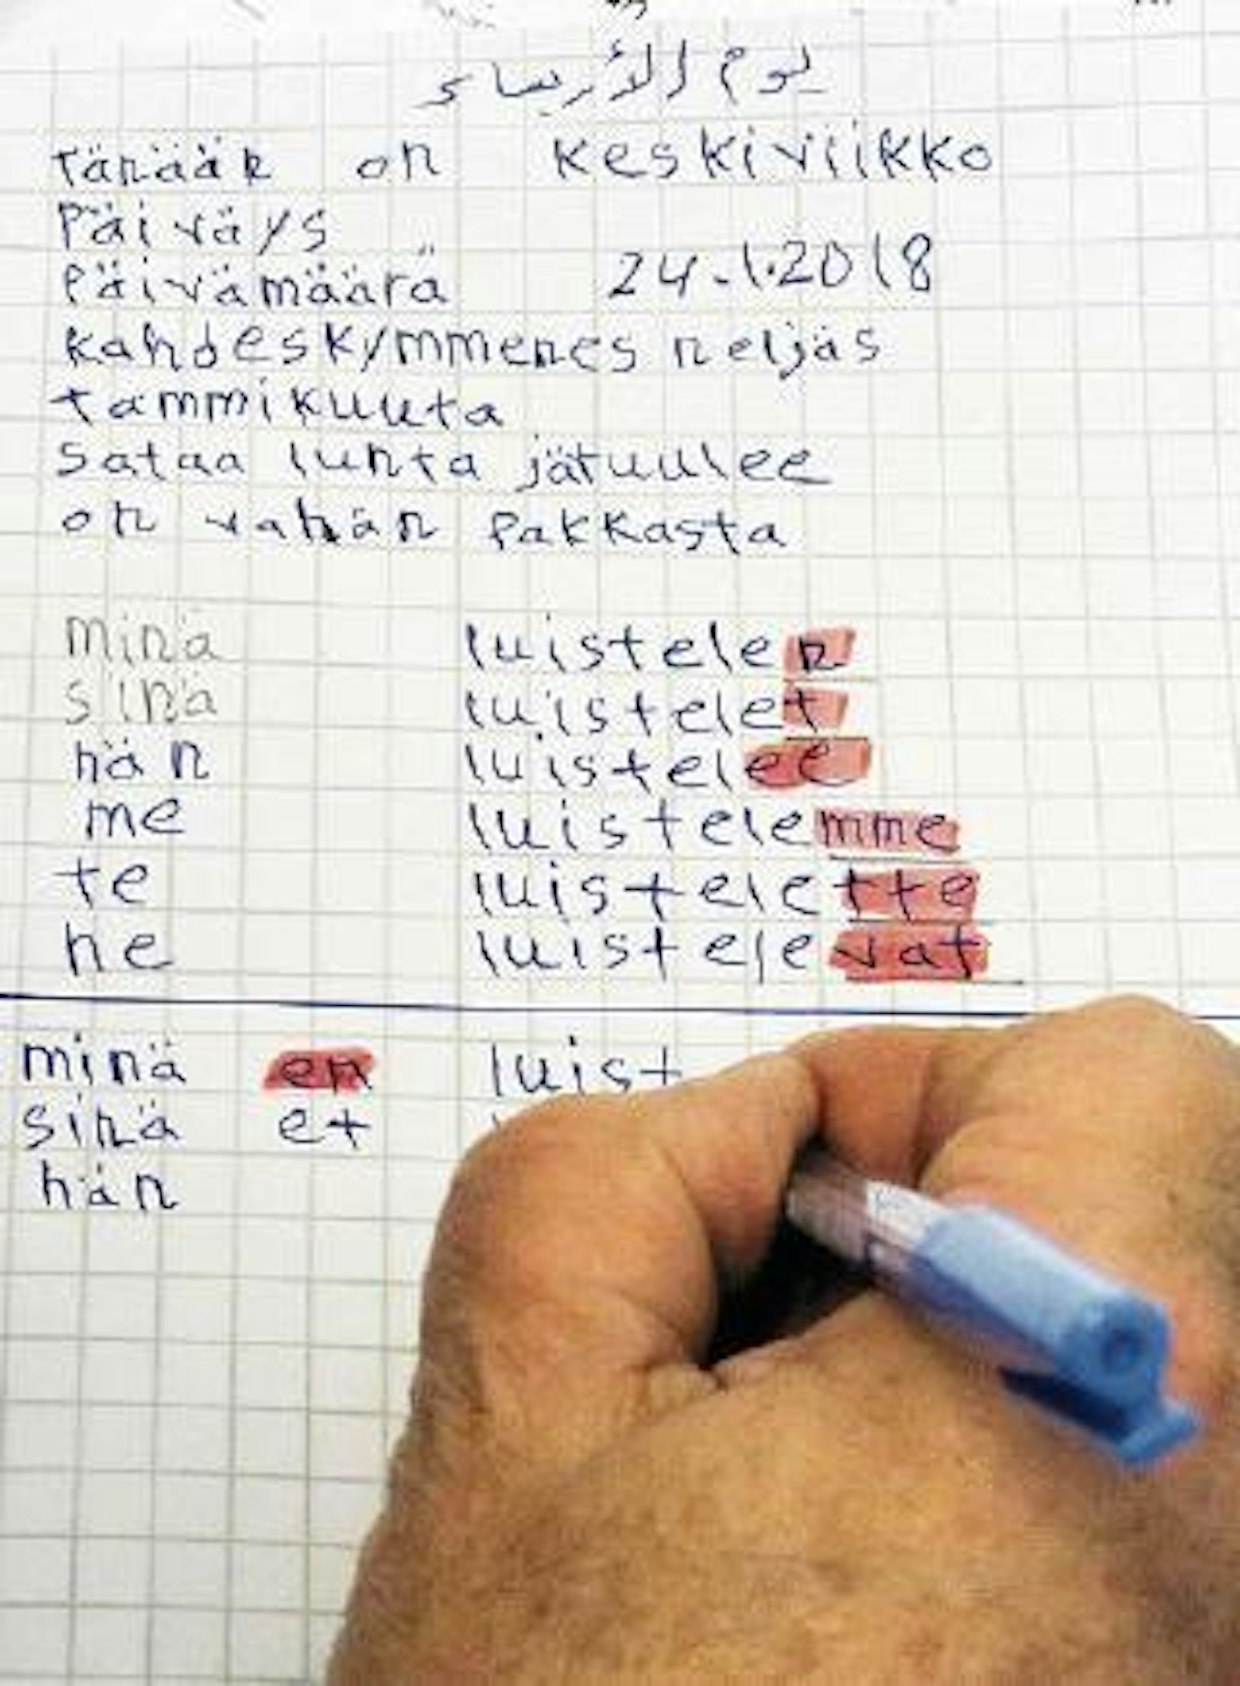 يوم الأربعاء
Tänään on keskiviikko
Päiväys
Päivämäärä 24.1.2018
kahdeskymmenes neljäs
tammikuuta
Sataa lunta jätuulee
on vähän pakkasta
minä luistelen
sinä luistelet
hän luistelee
me luistelemme
te luistelette
he luistelevat
minä en luist
sinä et
hän